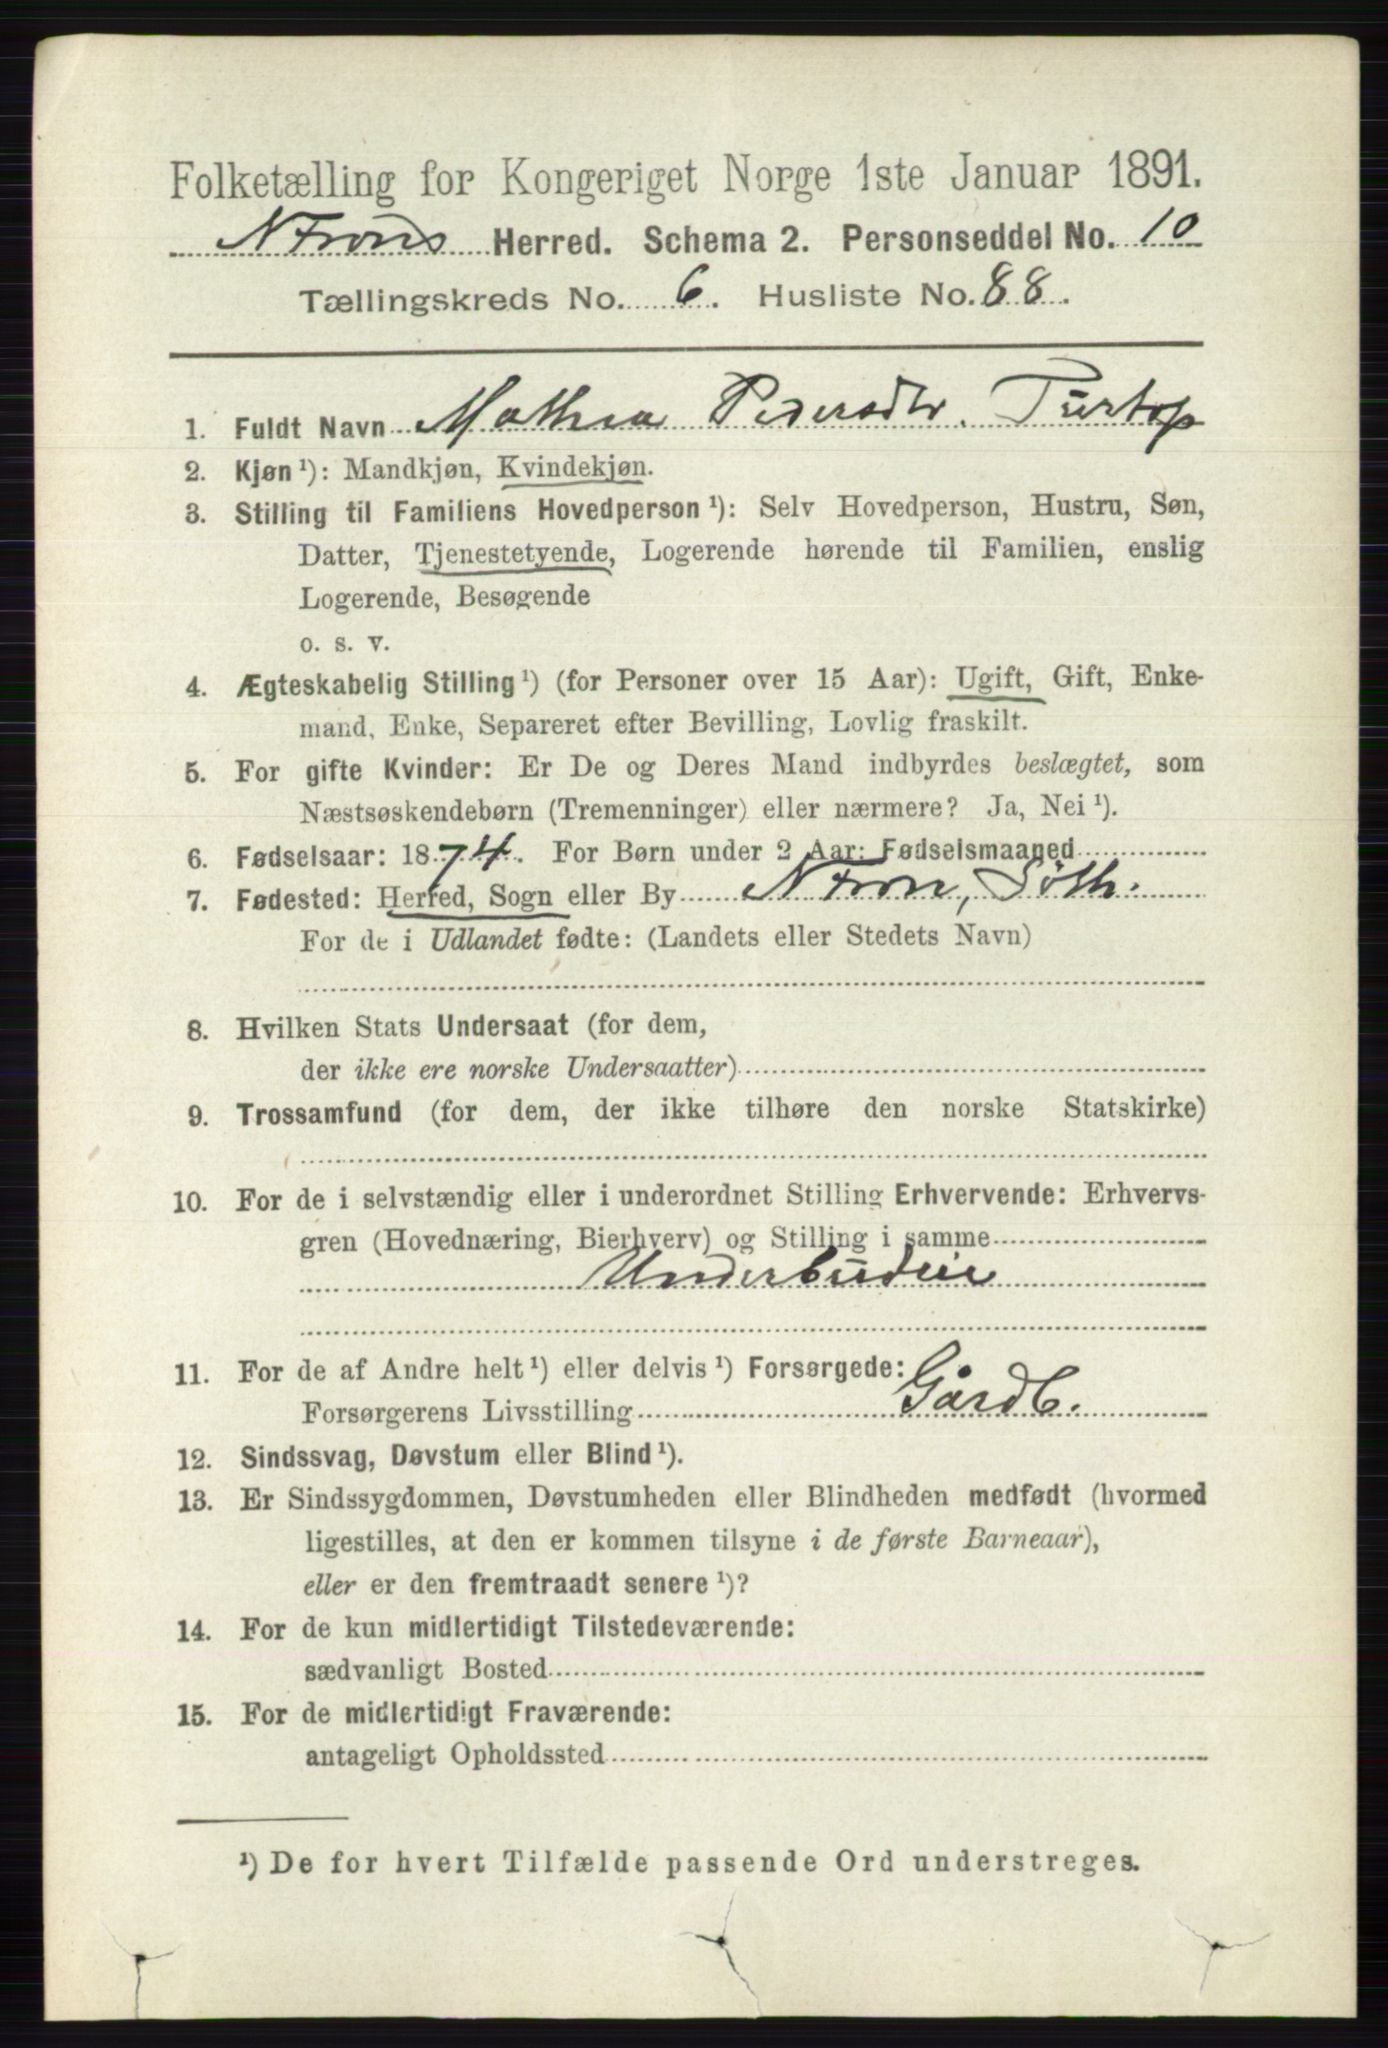 Folketælling for Kongeriget Norge 1ste Januar 1891.
N Frons Herred. Schema 2. Personseddel No. 10
Tællingskreds No. 6. Husliste No. 88.
1. Fuldt Navn Mathea Pedersdtr. Turtop
2. Kjøn ¹): Mandkjøn, Kvindekjøn.
3. Stilling til Familiens Hovedperson ¹): Selv Hovedperson, Hustru, Søn,
Datter, Tjenestetyende, Logerende hørende til Familien, enslig
Logerende, Besøgende
o. s. v.
4. Ægteskabelig Stilling ¹) (for Personer over 15 Aar): Ugift, Gift, Enke-
mand, Enke, Separeret efter Bevilling, Lovlig fraskilt.
5. For gifte Kvinder: Er De og Deres Mand indbyrdes beslægtet, som
Næstsøskendebørn (Tremenninger) eller nærmere? Ja, Nei ¹).
6. Fødselsaar: 1874. For Børn under 2 Aar: Fødselsmaaned
7. Fødested: Herred, Sogn eller By N Fron, Sødh.
For de i Udlandet fødte: (Landets eller Stedets Navn)
8. Hvilken Stats Undersaat (for dem,
der ikke ere norske Undersaatter)
9. Trossamfund (for dem, der ikke tilhøre den norske Statskirke)
10. For de i selvstændig eller i underordnet Stilling Erhvervende: Erhvervs-
gren (Hovednæring, Bierhverv) og Stilling i samme
Underbudeie
11. For de af Andre helt ¹) eller delvis ¹) Forsørgede:
Forsørgerens Livsstilling Gårdb.
12. Sindssvag, Døvstum eller Blind ¹).
13. Er Sindssygdommen, Døvstumheden eller Blindheden medfødt (hvormed
ligestilles, at den er kommen tilsyne i de første Barneaar),
eller er den fremtraadt senere ¹)?
14. For de kun midlertidigt Tilstedeværende:
sædvanligt Bosted
15. For de midlertidigt Fraværende:
antageligt Opholdssted
¹) De for hvert Tilfælde passende Ord understreges.